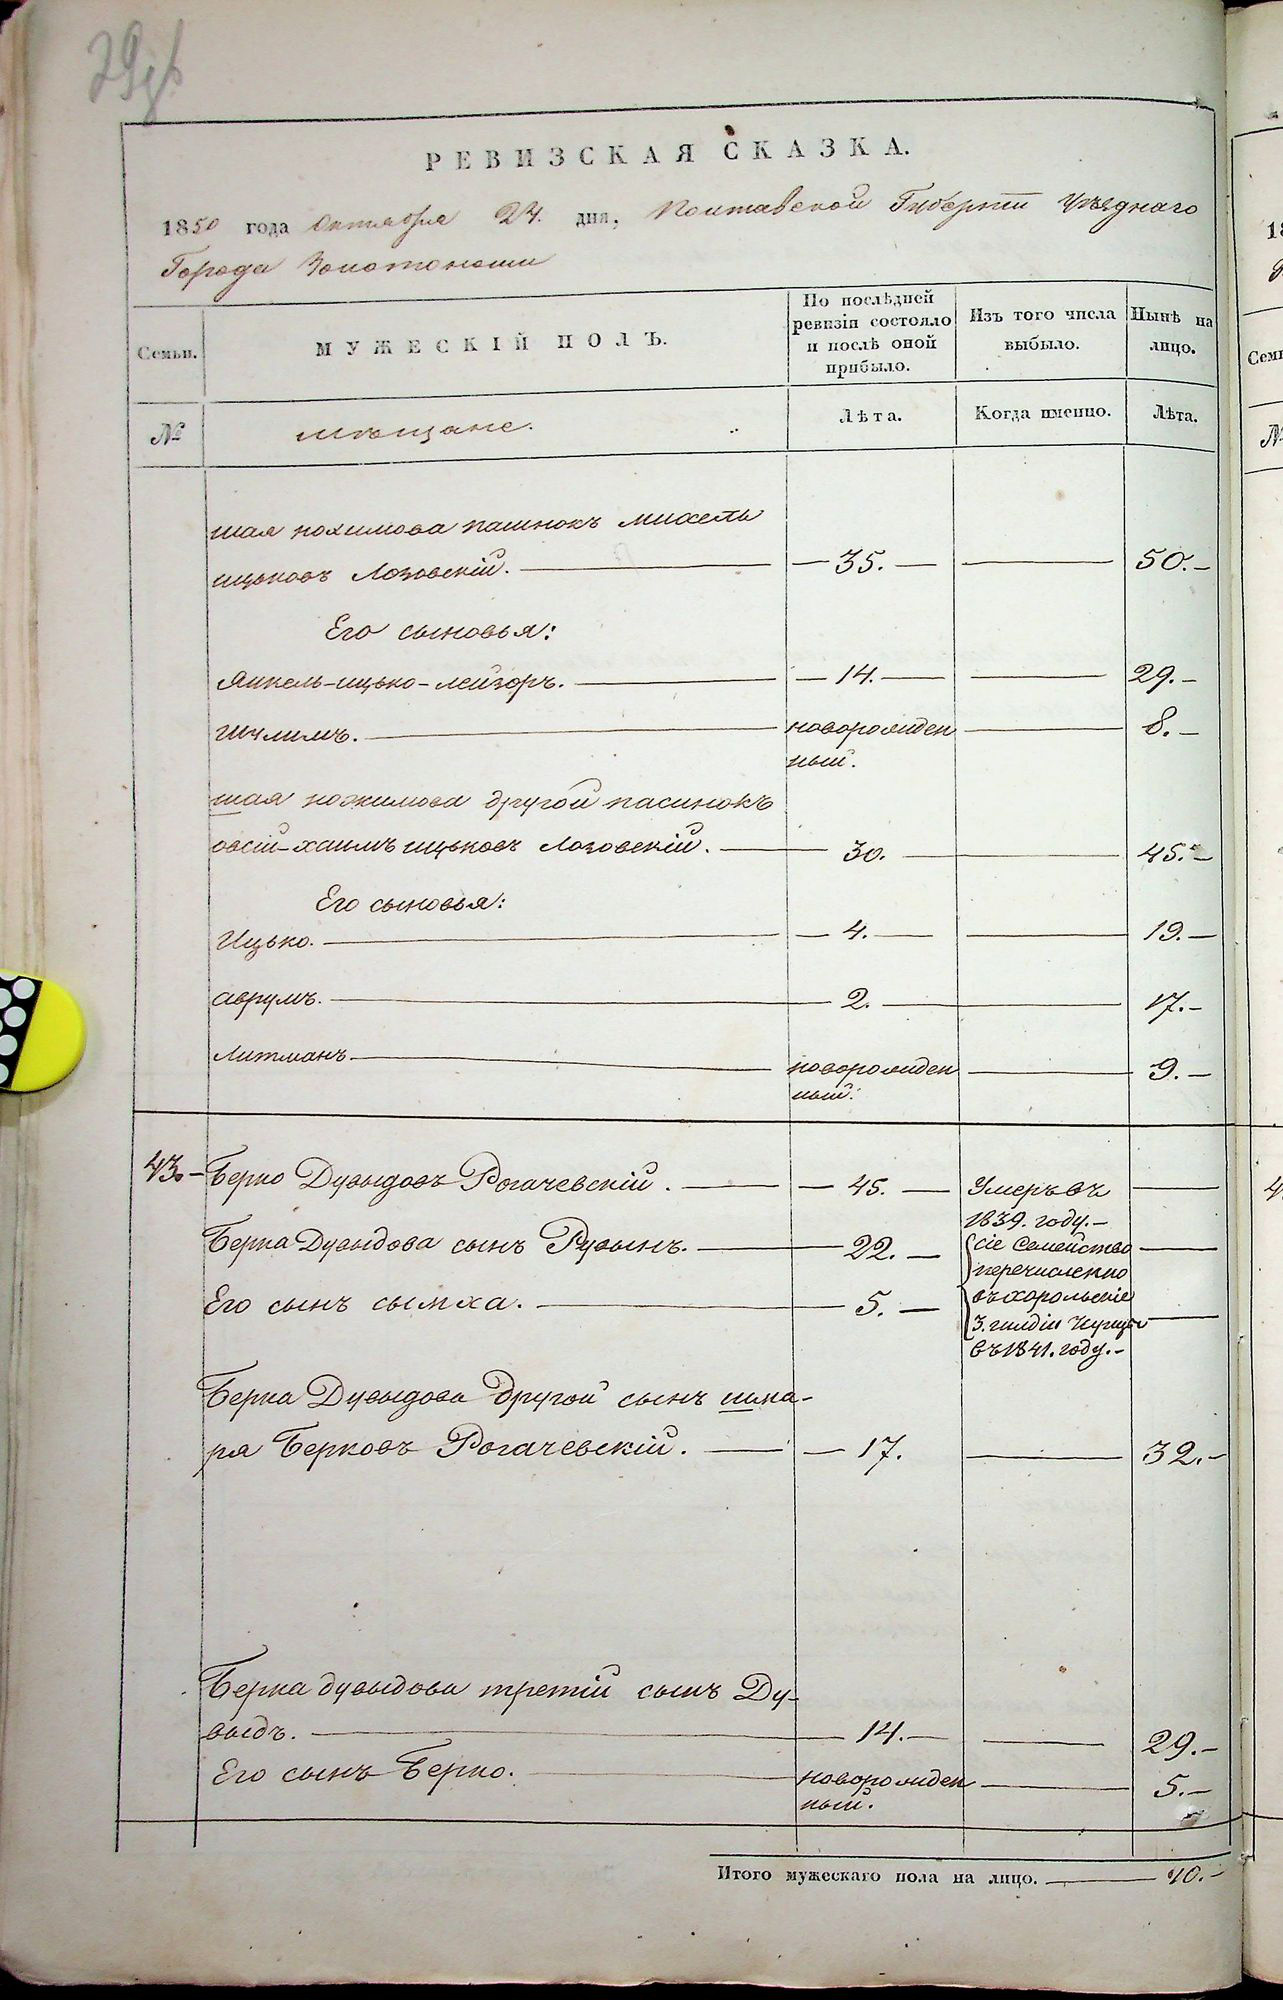 29об
РЕВИЗСКАЯ СКАЗКА.
1850 года Октября 24. дня, Полтавской Губерніи Уѣзднаго
Города Золотоноши
Семьи.
МУЖЕСКІЙ ПОЛЪ.
По послѣдней ревизіи состояло и послѣ оной прибыло.
Изъ того числа выбыло.
Нынѣ на лицо.
№
мѣщане.
Лѣта.
Когда именно.
Лѣта.
шая нохимова пасинокъ михель
ицьковъ Лозовскій. — 35. — 50.
Его сыновья:
Янкель-ицько-лейзоръ. — 14. — 29.
шулимъ. — новорожденный. — 8.
шая нохимова другой пасинокъ
овсій-хаимъ ицьковъ Лозовскій. — 30. — 45.
Его сыновья:
Ицько. — 4. — 19.
аврумъ. — 2. — 17.
Литманъ — новорожденный. — 9.
43. Берко Дувыдовъ Рогачевскій. — 45. — Умеръ въ 1839. году. —
Берка Дувыдова сынъ Рувынъ. — 22. — сіе семейство
перечисленно
Его сынъ сымха. — 5. — въ хорольскіе
3. гилдіи Купцы
въ 1841. году. —
Берка Дувыдова другой сынъ шма-
ря Берковъ Рогачевскій. — 17. — 32. —
Берка дувыдова третій сынъ Ду-
выдъ. — 14. — 29. —
Его сынъ Берко. — новорожденный. — 5. —
Итого мужескаго пола на лицо. — 10. —